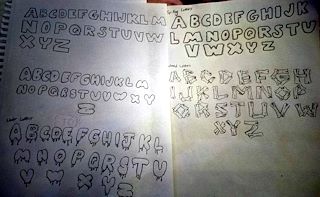 ABCDEFGHIJKLM
NOPQRSTUVW
XYZ
ABCDEFGHIJKLM
NOPQRSTUVWXY
Z
ABCDEFGHIJKL
MNOPQRSTU
VWXYZ
ABCDEFGHIJK
LMNOPQRSTU
VWXYZ
Wood Letters
ABCDEFGH
IJKLMNOP
QRSTUVW
XYZ